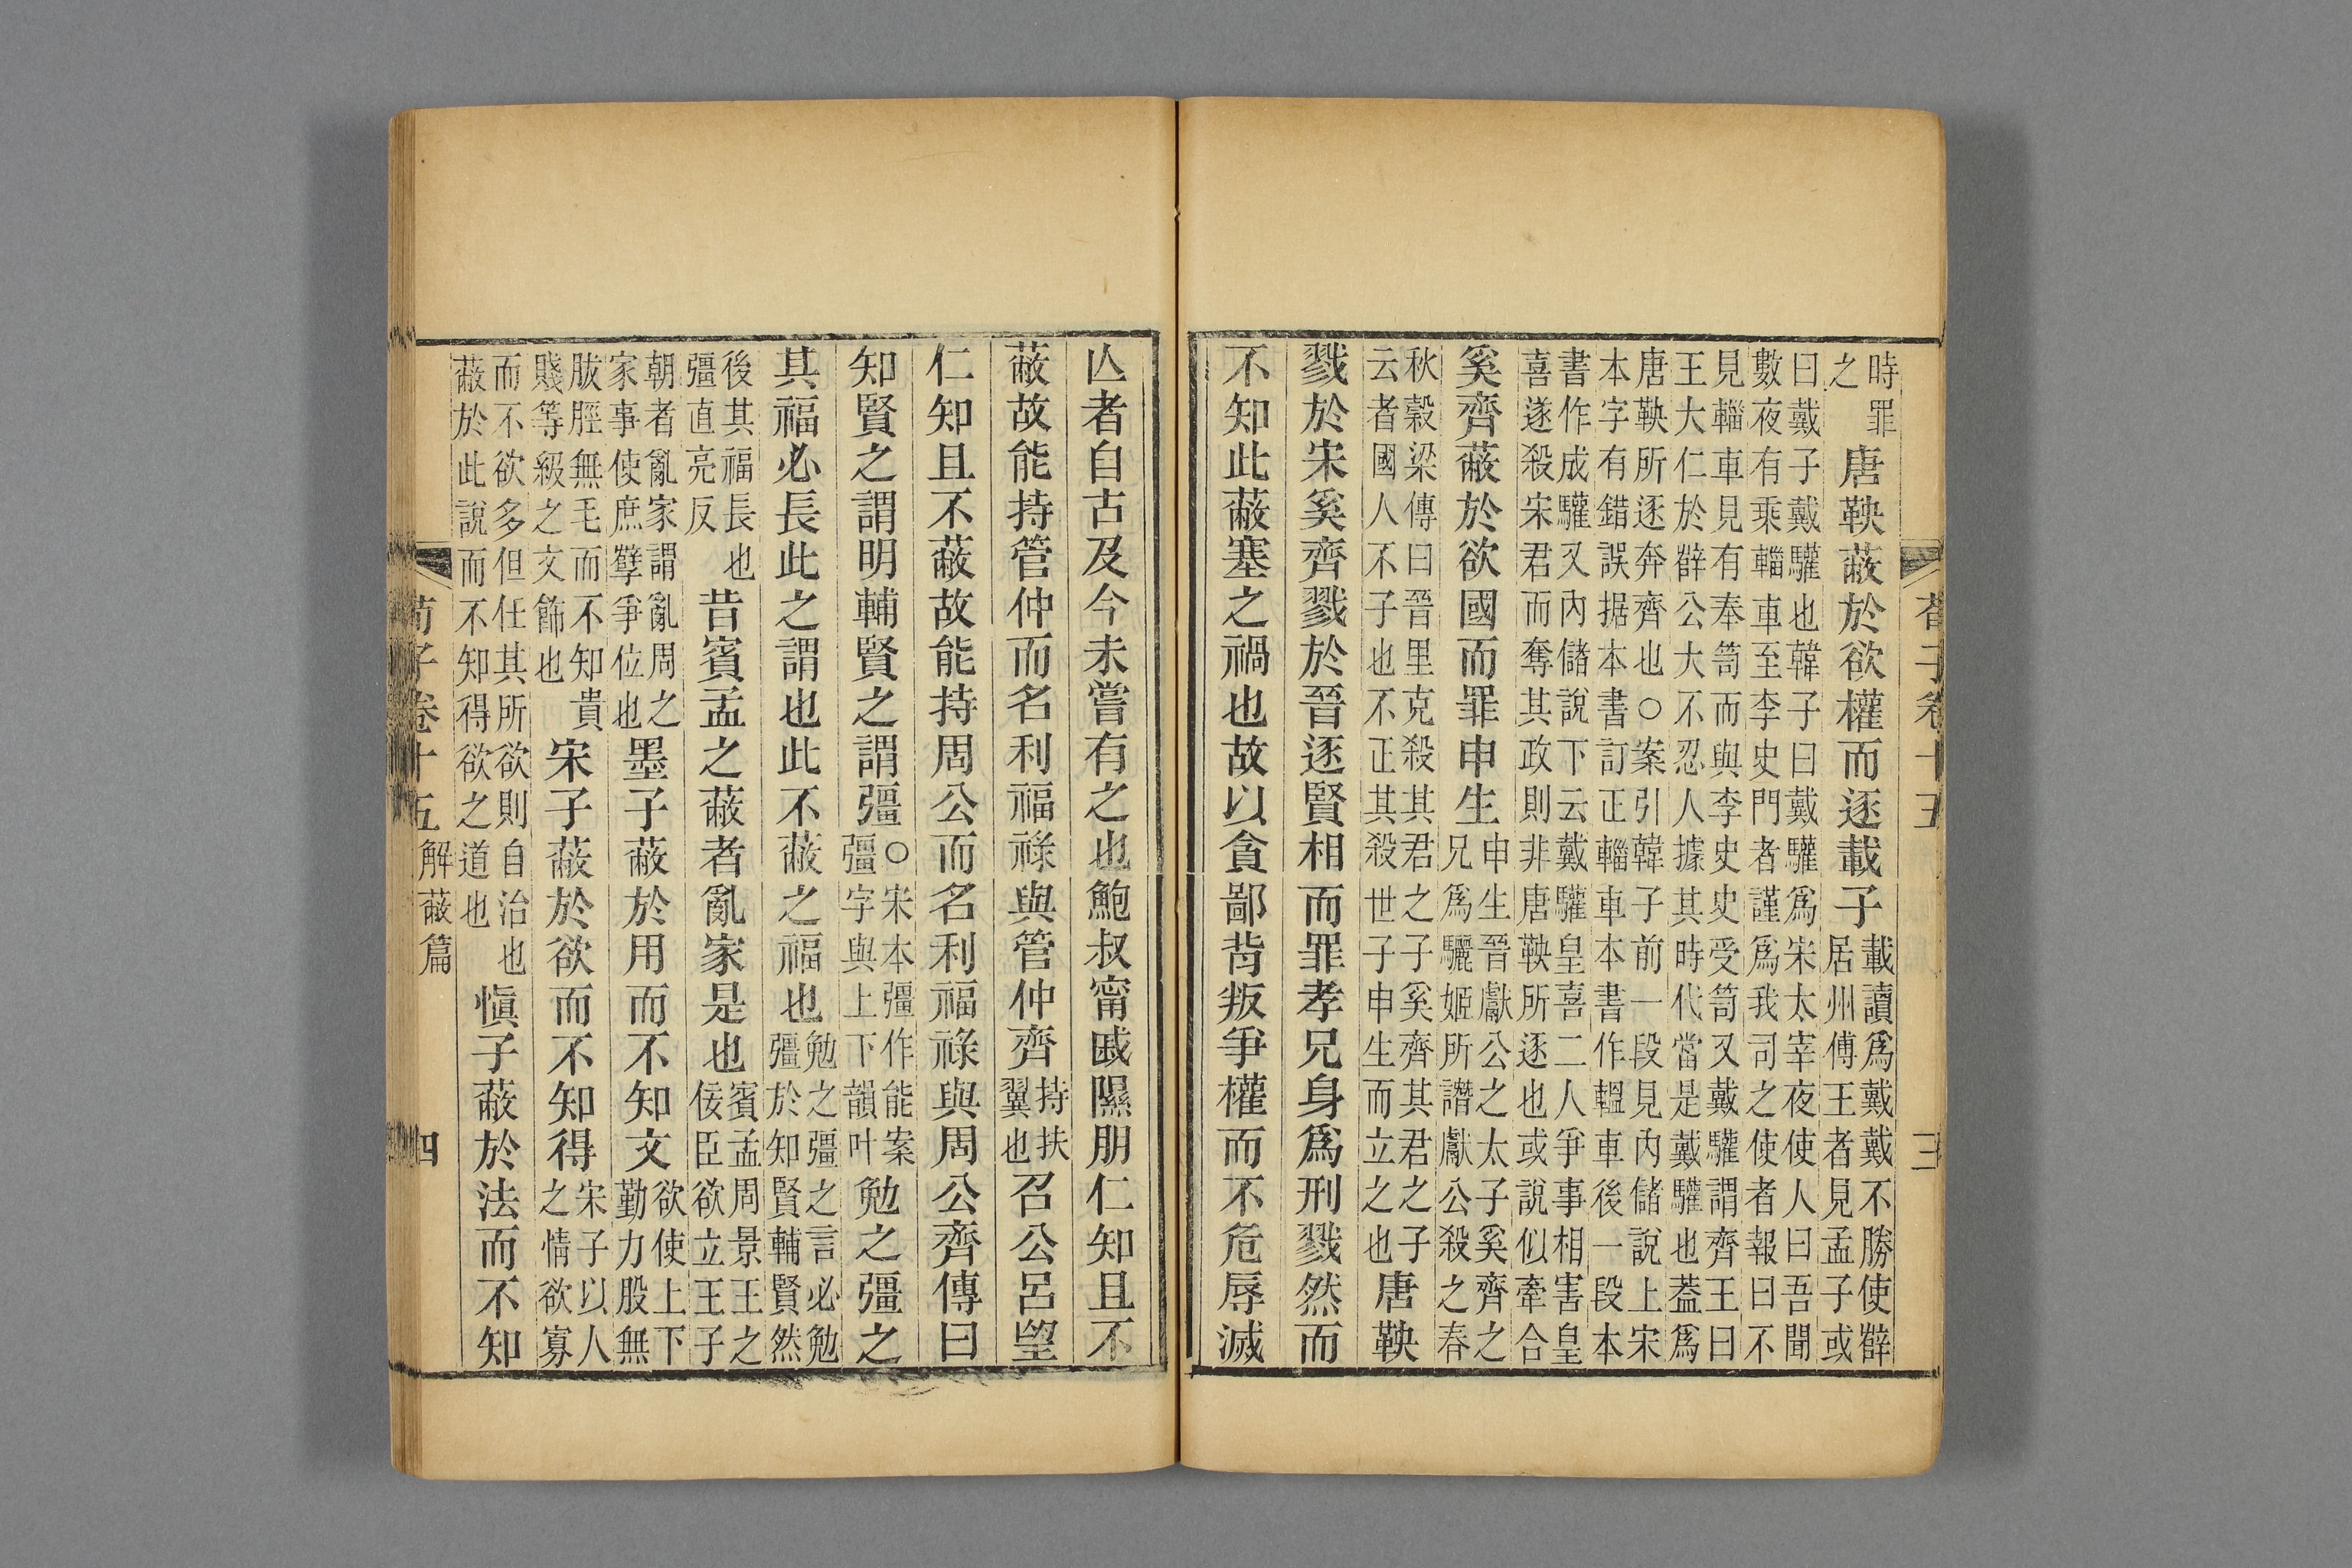 荀子卷十五 三
時罪之唐鞅蔽於欲權而逐載子載讀爲戴戴不勝使辥居州傅王者見孟子或
曰戴子戴驩也韓子曰戴驩爲宋太宰夜使人曰吾聞數夜有乗輜車至李史門者謹爲我司之使者報曰不
見輜車見有奉笥而與李史史受笥又戴驩謂齊王曰王大仁於辥公大不忍人據其時代當是戴驩也葢爲
唐鞅所逐奔齊也○案引韓子前一段見内儲說上宋本字有錯誤据本書訂正輜車本書作轀車後一段本
書作成驩又内儲說下云戴驩皇喜二人爭事相害皇喜遂殺宋君而奪其政則非唐鞅所逐也或說似牽合
奚齊蔽於欲國而罪申生申生晉獻公之太子奚齊之兄爲驪姬所譖獻公殺之春
秋穀梁傳曰晉里克殺其君之子奚齊其君之子云者國人不子也不正其殺世子申生而立之也唐鞅
戮於宋奚齊戮於晉逐賢相而罪孝兄身爲刑戮然而
不知此蔽塞之禍也故以貪鄙背叛爭權而不危辱滅
亾者自古及今未嘗有之也鮑叔甯戚隰朋仁知且不
蔽故能持管仲而名利福祿與管仲齊持扶翼也召公呂望
仁知且不蔽故能持周公而名利福祿與周公齊傳曰
知賢之謂明輔賢之謂彊○宋本彊作能案彊字與上下韻叶勉之彊之
其福必長此之謂也此不蔽之福也勉之彊之言必勉彊於知賢輔賢然
後其福長也彊直亮反昔賓孟之蔽者亂家是也賓孟周景王之佞臣欲立王子
朝者亂家謂亂周之家事使庶孽爭位也墨子蔽於用而不知文欲使上下勤力股無
胈脛無毛而不知貴賤等級之文飾也宋子蔽於欲而不知得宋子以人之情欲寡
而不欲多但任其所欲則自治也蔽於此說而不知得欲之道也慎子蔽於法而不知
荀子卷十五 解蔽篇 四